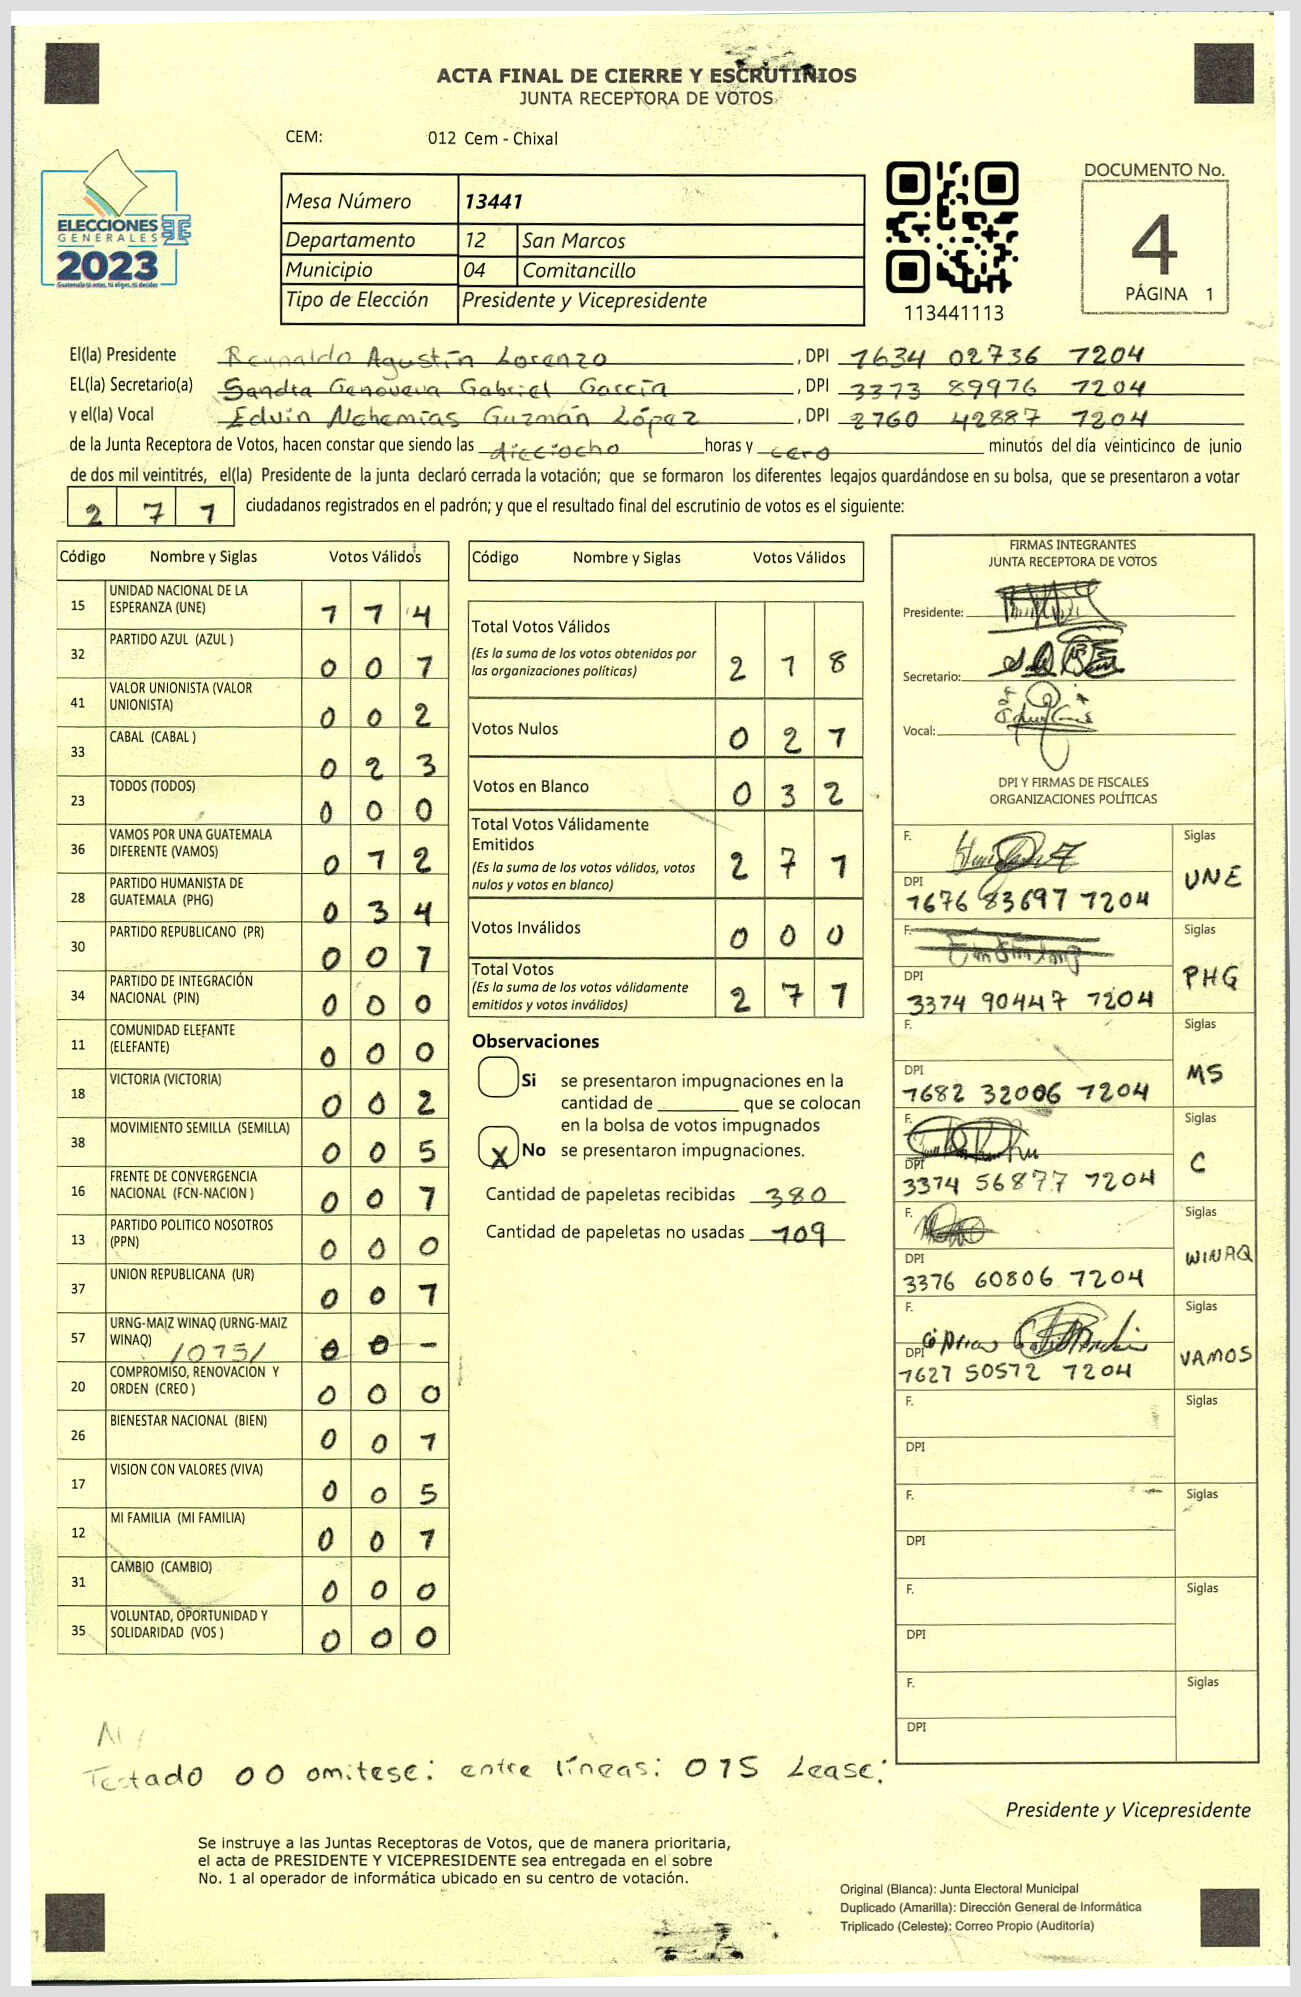 ACTA FINAL DE CIERRE Y ESCRUTINIOS
JUNTA RECEPTORA DE VOTOS
CEM: 012 Cem - Chixal
ELECCIONES
GENERALES
2023
Guatemala tú votas, tú eliges, tú decides
Mesa Número 13441
Departamento 12 San Marcos
Municipio 04 Comitancillo
Tipo de Elección Presidente y Vicepresidente
113441113
DOCUMENTO No.
4
PÁGINA 1
El(la) Presidente Reynaldo Agustín Lorenzo , DPI 1634 02736 1204
EL(la) Secretario(a) Sandra Genoveva Gabriel García , DPI 3373 89976 1204
y el(la) Vocal Edvin Nehemías Guzmán López , DPI 2760 42887 1204
de la Junta Receptora de Votos, hacen constar que siendo las dieciocho horas y cero minutos del día veinticinco de junio
de dos mil veintitrés, el(la) Presidente de la junta declaró cerrada la votación; que se formaron los diferentes legajos guardándose en su bolsa, que se presentaron a votar
2 7 1 ciudadanos registrados en el padrón; y que el resultado final del escrutinio de votos es el siguiente:
Código Nombre y Siglas Votos Válidos
15 UNIDAD NACIONAL DE LA ESPERANZA (UNE) 1 1 4
32 PARTIDO AZUL (AZUL ) 0 0 1
41 VALOR UNIONISTA (VALOR UNIONISTA) 0 0 2
33 CABAL (CABAL ) 0 2 3
23 TODOS (TODOS) 0 0 0
36 VAMOS POR UNA GUATEMALA DIFERENTE (VAMOS) 0 1 2
28 PARTIDO HUMANISTA DE GUATEMALA (PHG) 0 3 4
30 PARTIDO REPUBLICANO (PR) 0 0 1
34 PARTIDO DE INTEGRACIÓN NACIONAL (PIN) 0 0 0
11 COMUNIDAD ELEFANTE (ELEFANTE) 0 0 0
18 VICTORIA (VICTORIA) 0 0 2
38 MOVIMIENTO SEMILLA (SEMILLA) 0 0 5
16 FRENTE DE CONVERGENCIA NACIONAL (FCN-NACION ) 0 0 1
13 PARTIDO POLITICO NOSOTROS (PPN) 0 0 0
37 UNION REPUBLICANA (UR) 0 0 1
57 URNG-MAIZ WINAQ (URNG-MAIZ WINAQ) /015/ 0 0 -
20 COMPROMISO, RENOVACION Y ORDEN (CREO ) 0 0 0
26 BIENESTAR NACIONAL (BIEN) 0 0 1
17 VISION CON VALORES (VIVA) 0 0 5
12 MI FAMILIA (MI FAMILIA) 0 0 1
31 CAMBIO (CAMBIO) 0 0 0
35 VOLUNTAD, OPORTUNIDAD Y SOLIDARIDAD (VOS ) 0 0 0
Código Nombre y Siglas Votos Válidos
Total Votos Válidos 2 1 8
(Es la suma de los votos obtenidos por
las organizaciones políticas)
Votos Nulos 0 2 1
Votos en Blanco 0 3 2
Total Votos Válidamente
Emitidos 2 7 1
(Es la suma de los votos válidos, votos
nulos y votos en blanco)
Votos Inválidos 0 0 0
Total Votos 2 7 1
(Es la suma de los votos válidamente
emitidos y votos inválidos)
Observaciones
Si se presentaron impugnaciones en la
cantidad de ________ que se colocan
en la bolsa de votos impugnados
X No se presentaron impugnaciones.
Cantidad de papeletas recibidas 380
Cantidad de papeletas no usadas 109
FIRMAS INTEGRANTES
JUNTA RECEPTORA DE VOTOS
Presidente:
Secretario:
Vocal:
DPI Y FIRMAS DE FISCALES
ORGANIZACIONES POLÍTICAS
F. Siglas
DPI 1676 83697 1204 UNE
F. Siglas
DPI 3374 90447 1204 PHG
F. Siglas
DPI 1682 32006 1204 MS
F. Siglas
DPI 3374 56877 1204 C
F. Siglas
DPI 3376 60806 1204 WINAQ
F. Siglas
DPI 1627 50572 1204 VAMOS
F. Siglas
DPI
F. Siglas
DPI
F. Siglas
DPI
F. Siglas
DPI
Testado 00 omitese: entre líneas: 015 Lease:
Presidente y Vicepresidente
Se instruye a las Juntas Receptoras de Votos, que de manera prioritaria,
el acta de PRESIDENTE Y VICEPRESIDENTE sea entregada en el sobre
No. 1 al operador de informática ubicado en su centro de votación.
Original (Blanca): Junta Electoral Municipal
Duplicado (Amarilla): Dirección General de Informática
Triplicado (Celeste): Correo Propio (Auditoría)